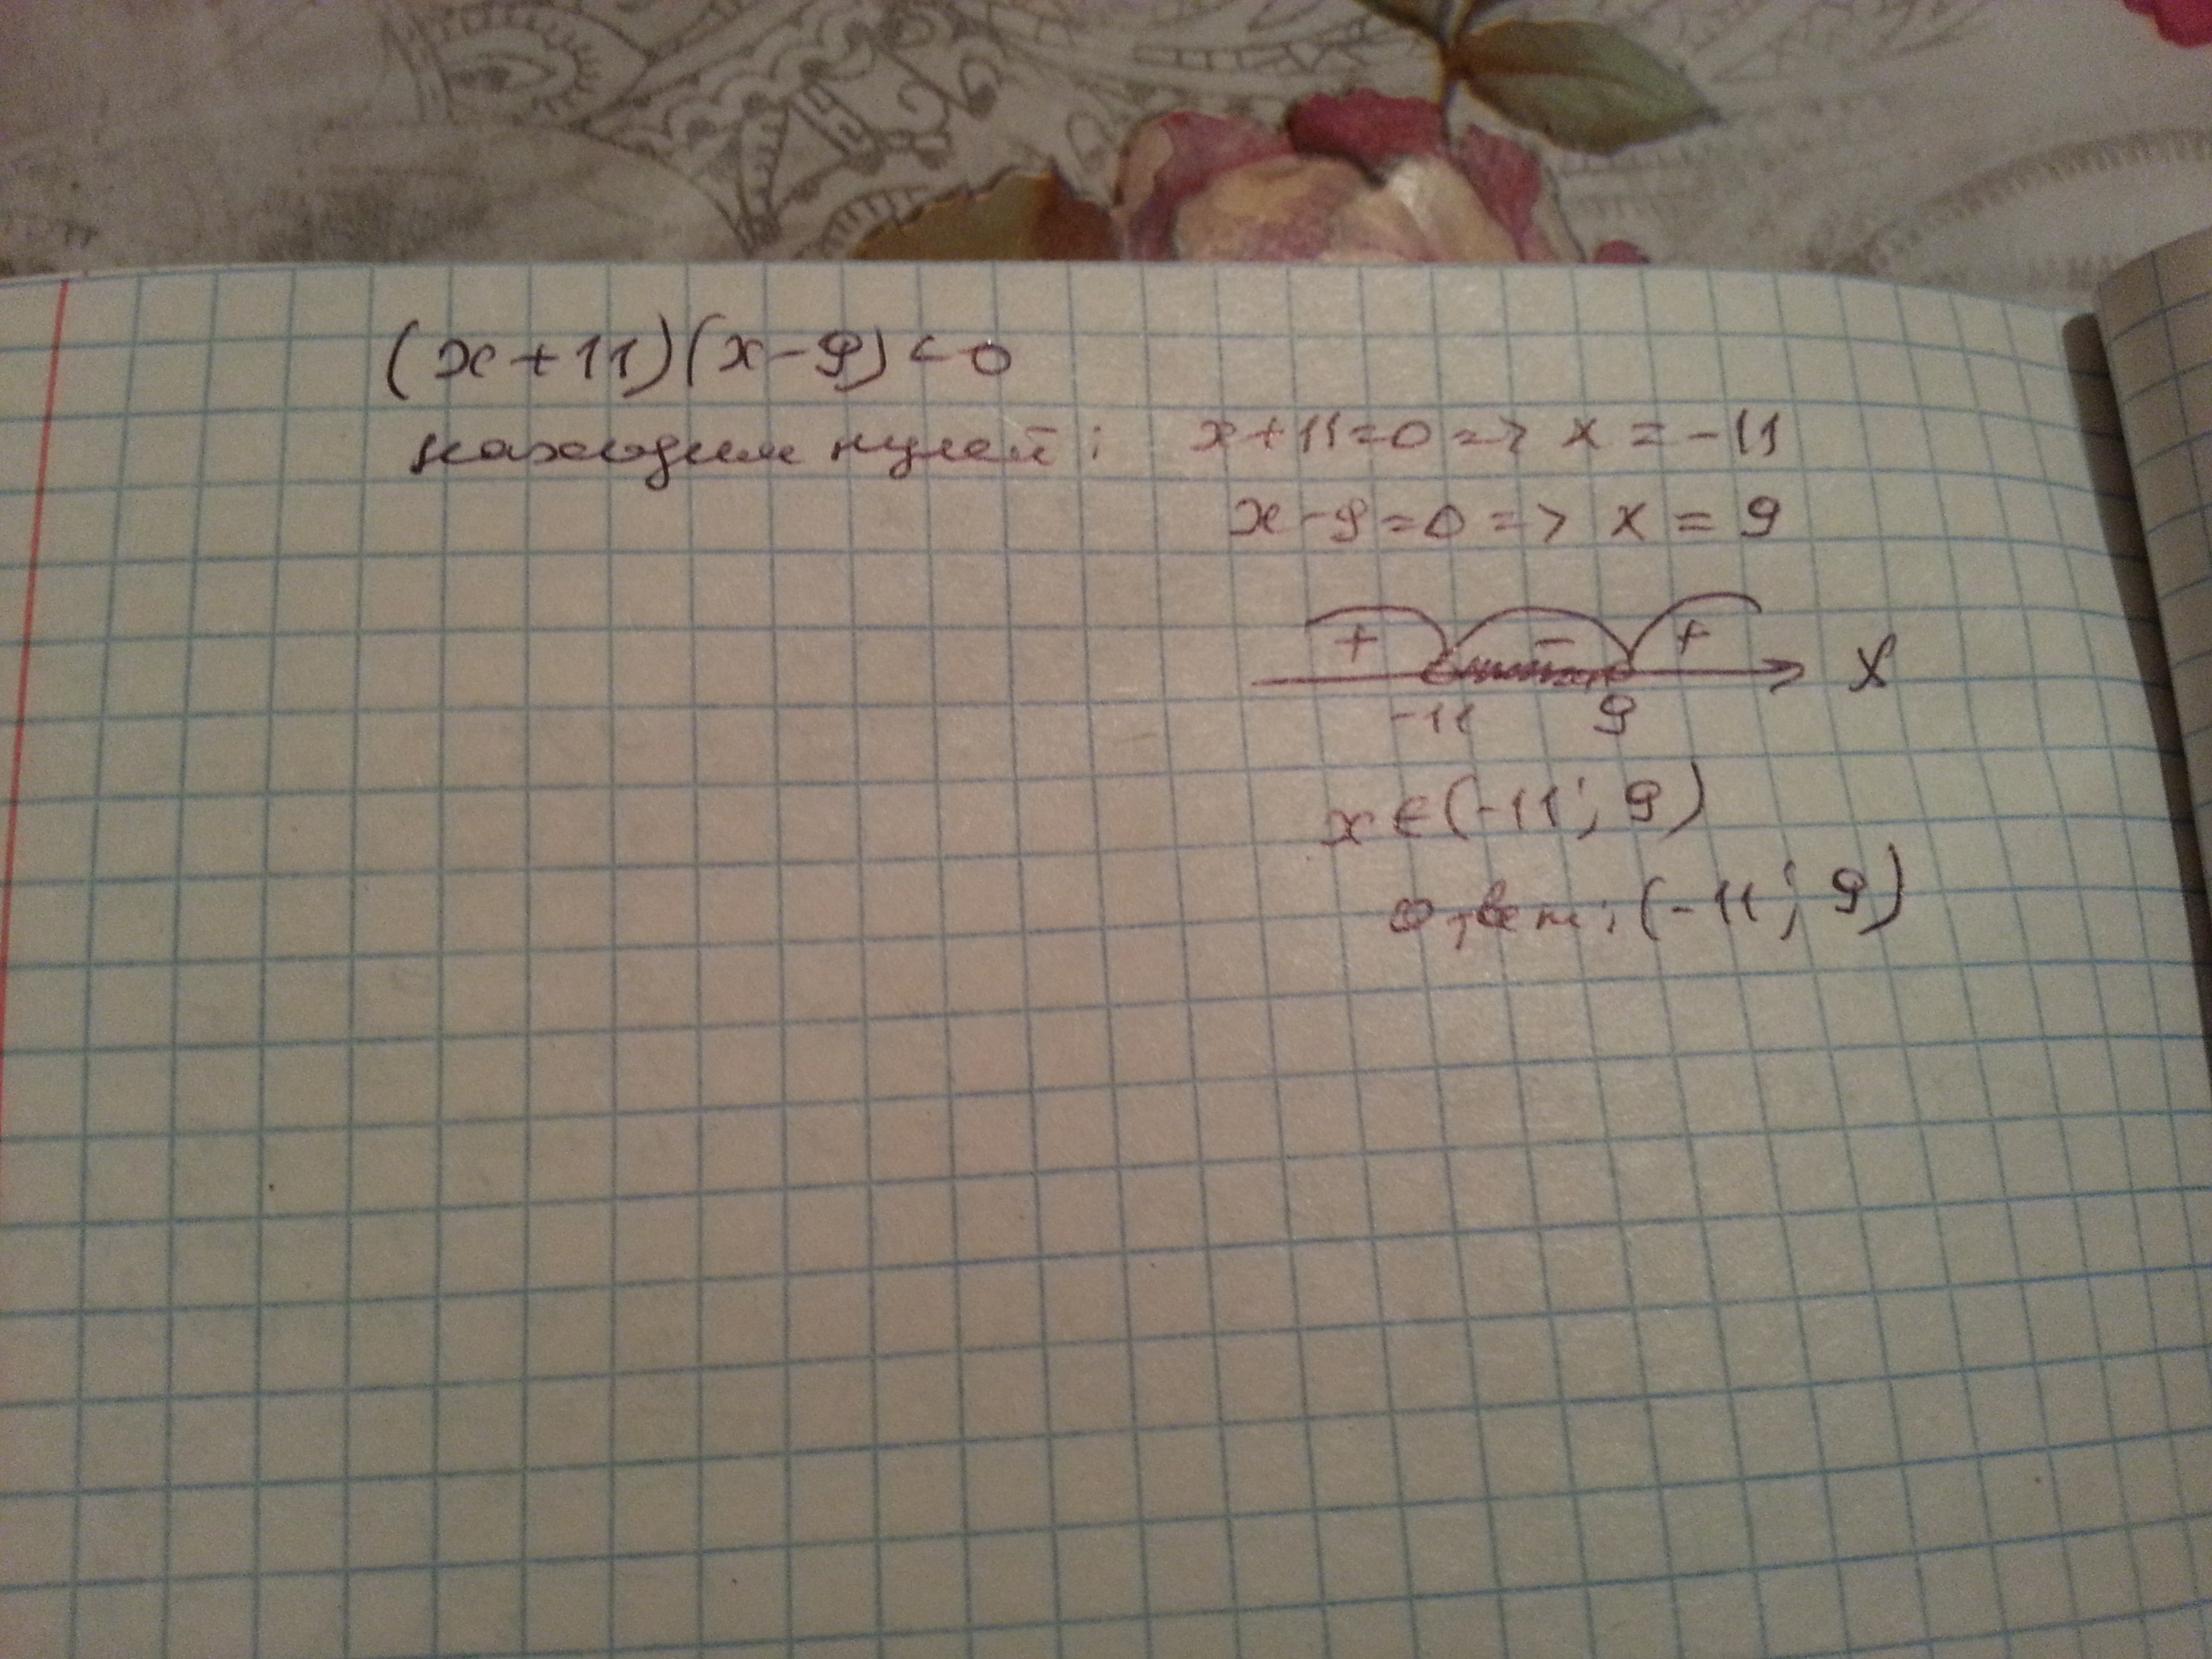 (x+11)(x-9)<0
находим нулей: x+11=0=> x=-11
x-9=0=> x=9
+ - +
-11 9 x
x∈(-11; 9)
ответ: (-11; 9)